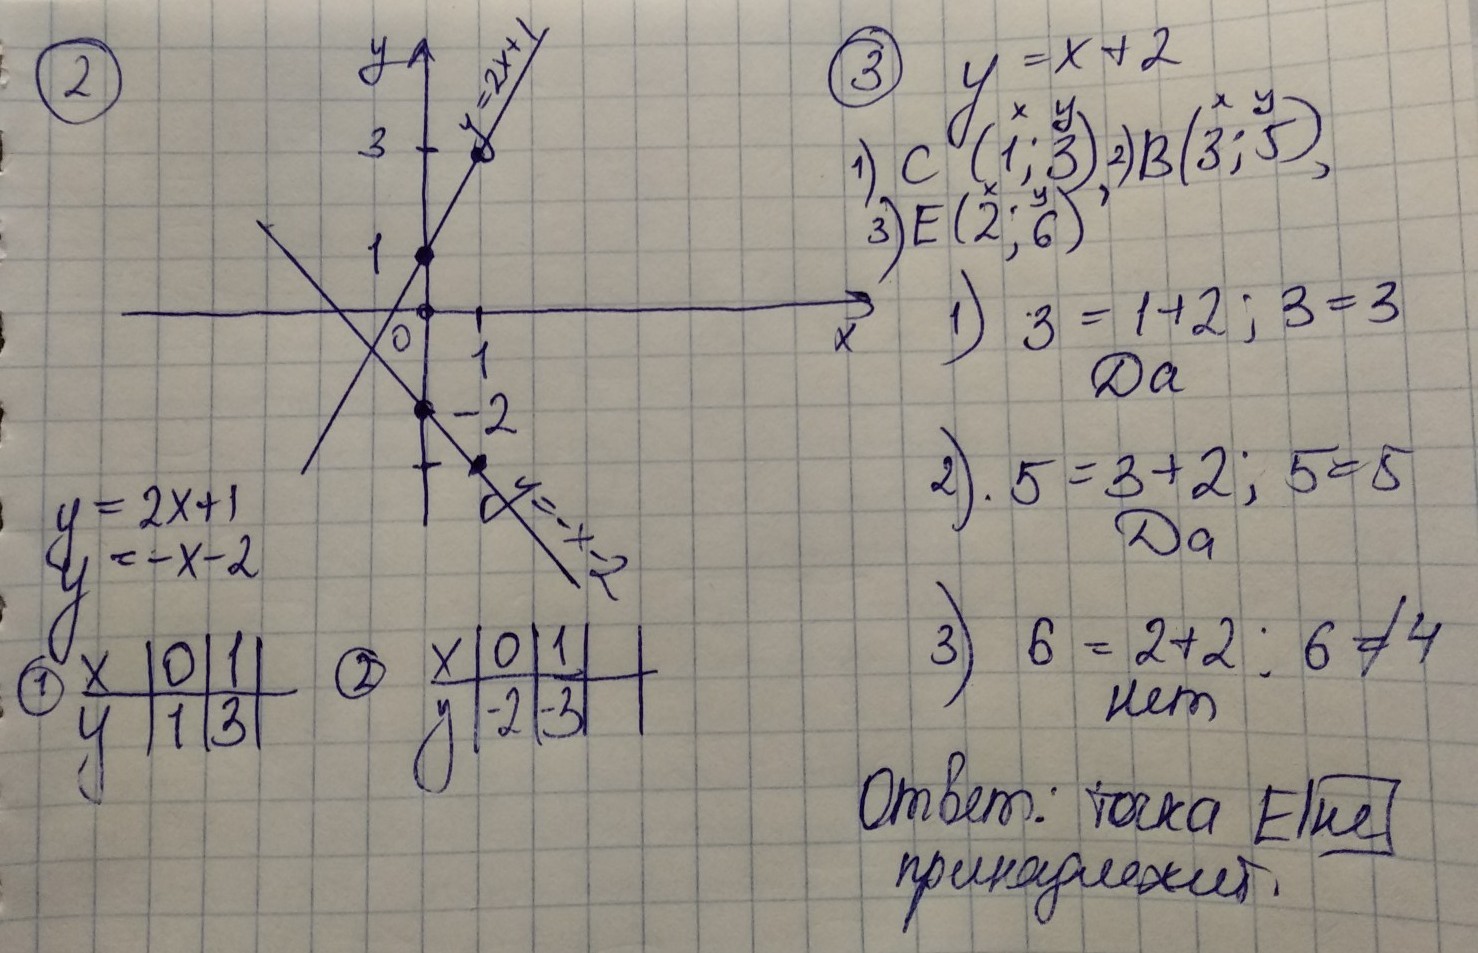 2
y
y = 2x+1
3
1
0
1
x
-2
y = -x-2
y = 2x+1
y = -x-2
1 x 0 1
y 1 3
2 x 0 1
y -2 -3
3 y = x+2
x y x y
1) C (1; 3), 2) B(3; 5),
x y
3) E(2; 6)
1) 3 = 1+2; 3 = 3
Да
2). 5 = 3+2; 5=5
Да
3) 6 = 2+2; 6 ≠ 4
нет
Ответ: точка E не
принадлежит.